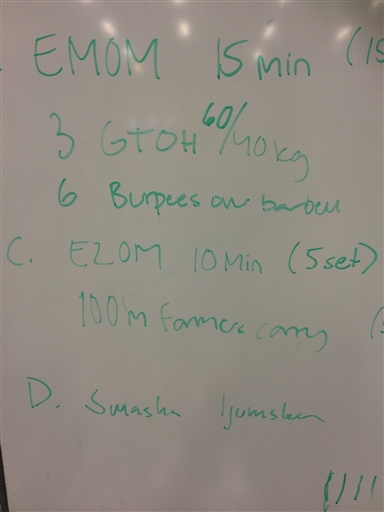 EMOM 15 min (15
3 GTOH 60/40kg
6 Burpees over barbell
C. E2OM 10 Min (5set)
100m farmers carry (
D. Smasha ljumsken